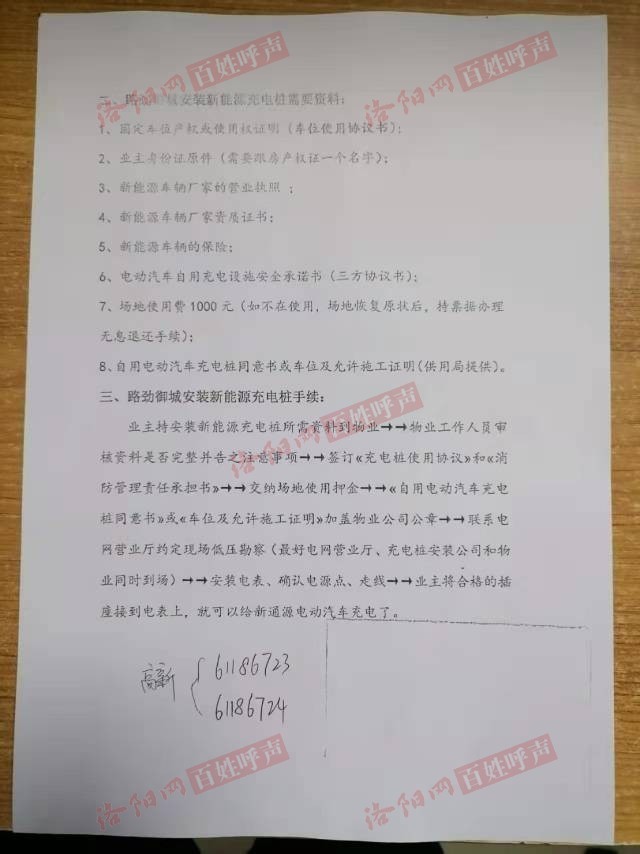 洛阳网 百姓呼声
二、路劲御城安装新能源充电桩需要资料：
1、固定车位产权或使用权证明（车位使用协议书）；
2、业主身份证原件（需要跟房产权证一个名字）；
3、新能源车辆厂家的营业执照；
4、新能源车辆厂家资质证书；
5、新能源车辆的保险；
6、电动汽车自用充电设施安全承诺书（三方协议书）；
7、场地使用费1000元（如不在使用，场地恢复原状后，持票据办理
无息退还手续）；
8、自用电动汽车充电桩同意书或车位及允许施工证明（供用局提供）。
三、路劲御城安装新能源充电桩手续：
洛阳网 百姓呼声
业主持安装新能源充电桩所需资料到物业→→物业工作人员审
核资料是否完整并告之注意事项→→签订《充电桩使用协议》和《消
防管理责任承担书》→→交纳场地使用押金→→《自用电动汽车充电
桩同意书》或《车位及允许施工证明》加盖物业公司公章→→联系电
网营业厅约定现场低压勘察（最好电网营业厅、充电桩安装公司和物
业同时到场）→→安装电表、确认电源点、走线→→业主将合格的插
座接到电表上，就可以给新通源电动汽车充电了。
高新 61186723
61186724
洛阳网 百姓呼声
洛阳网 百姓呼声